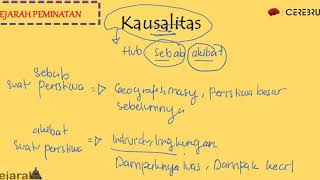 EJARAH PEMINATAN
CEREBRU
Kausalitas
Hub sebab akibat
sebab
suatu peristiwa ⇒ Geografis, masy, Peristiwa besar
sebelumnya
akibat
suatu peristiwa ⇒ Individu, lingkungan
Dampaknya luas, Dampak kecil
ejarah